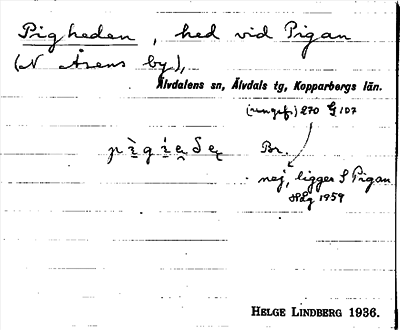 Pigheden, hed vid Pigan
(N Åsens by),
Älvdalens sn, Älvdals tg, Kopparbergs län.
(ungef.) 270 G 107
pìgíẹðę Br.
nej, ligger S Pigan
HLg 1959
HELGE LINDBERG 1936.